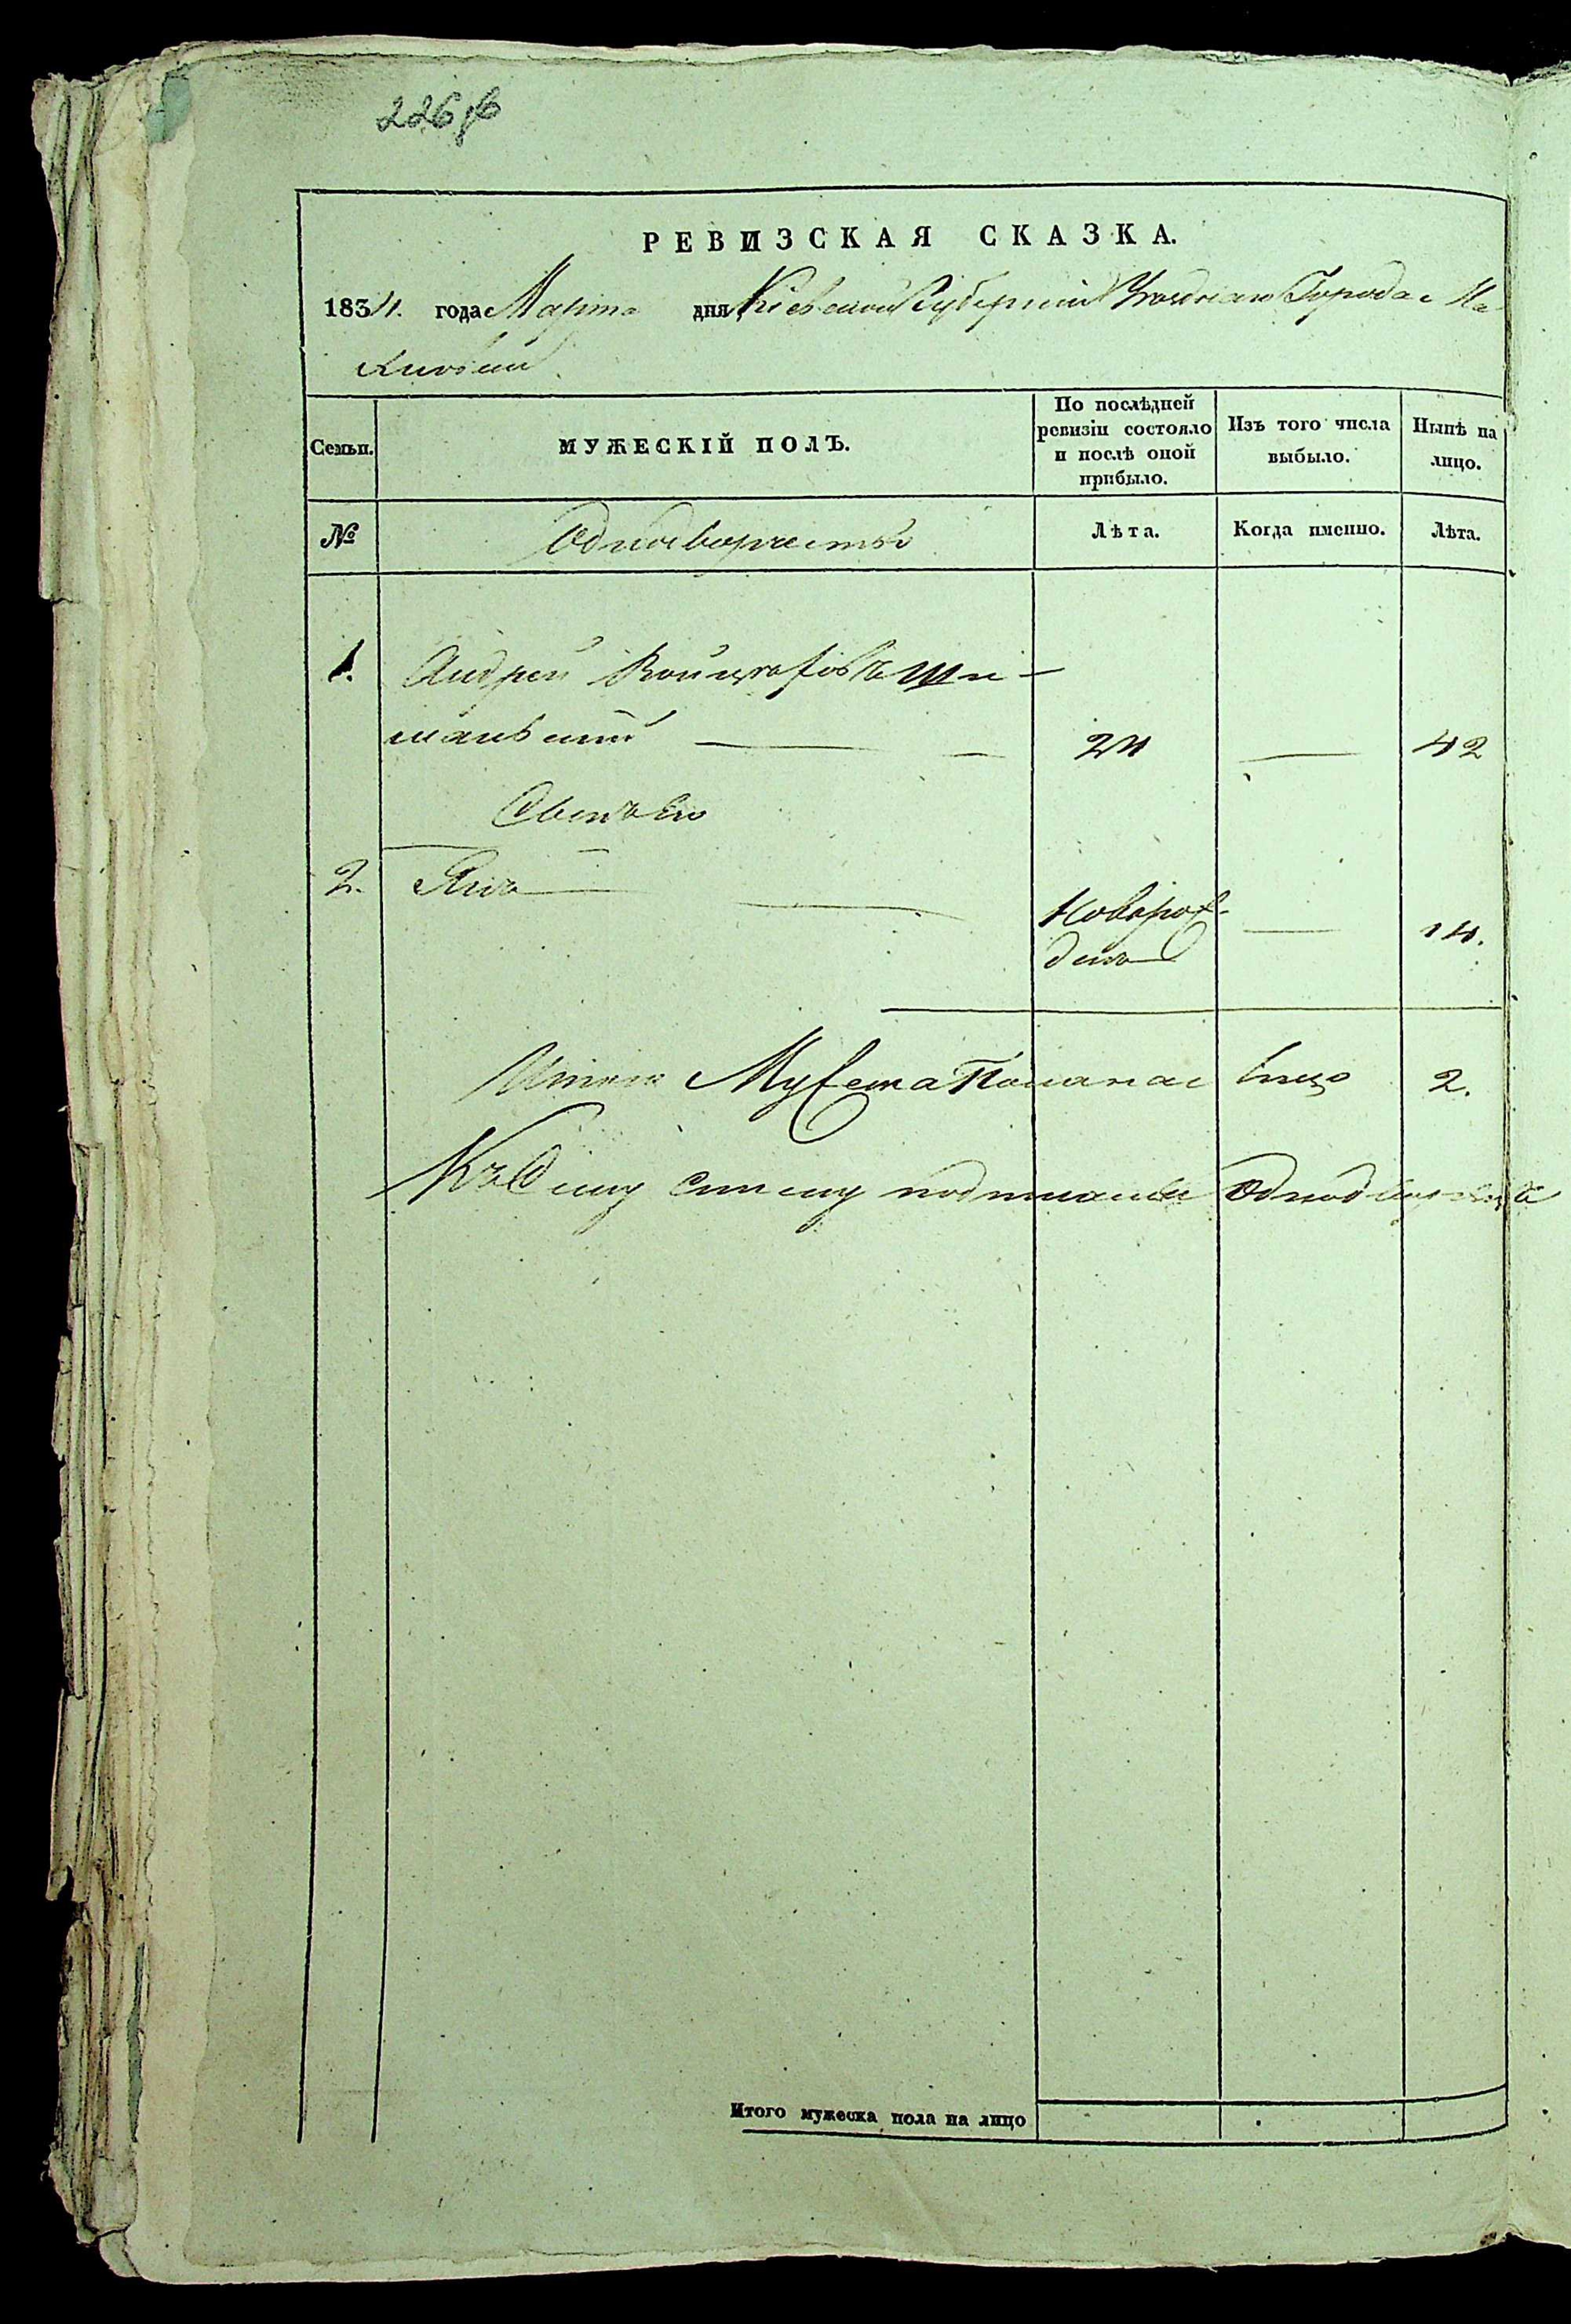 226 об
РЕВИЗСКАЯ СКАЗКА.
1834. года Марта дня Кіевской Губерніи Уезднаго Города Ли
повца
Семьи.
МУЖЕСКІЙ ПОЛЪ.
По послѣдней ревизіи состояло и послѣ оной прибыло.
Изъ того числа выбыло.
Нынѣ на лицо.
№
Лѣта.
Когда именно.
Лѣта.
1. Андрей Войцехов Ши-
манскій 24 42
Сынъ его
2. Янъ Новорож-
денъ 14.
Итого Мужеска Пола на лицо 2.
Къ Сему
Итого мужеска пола на лицо